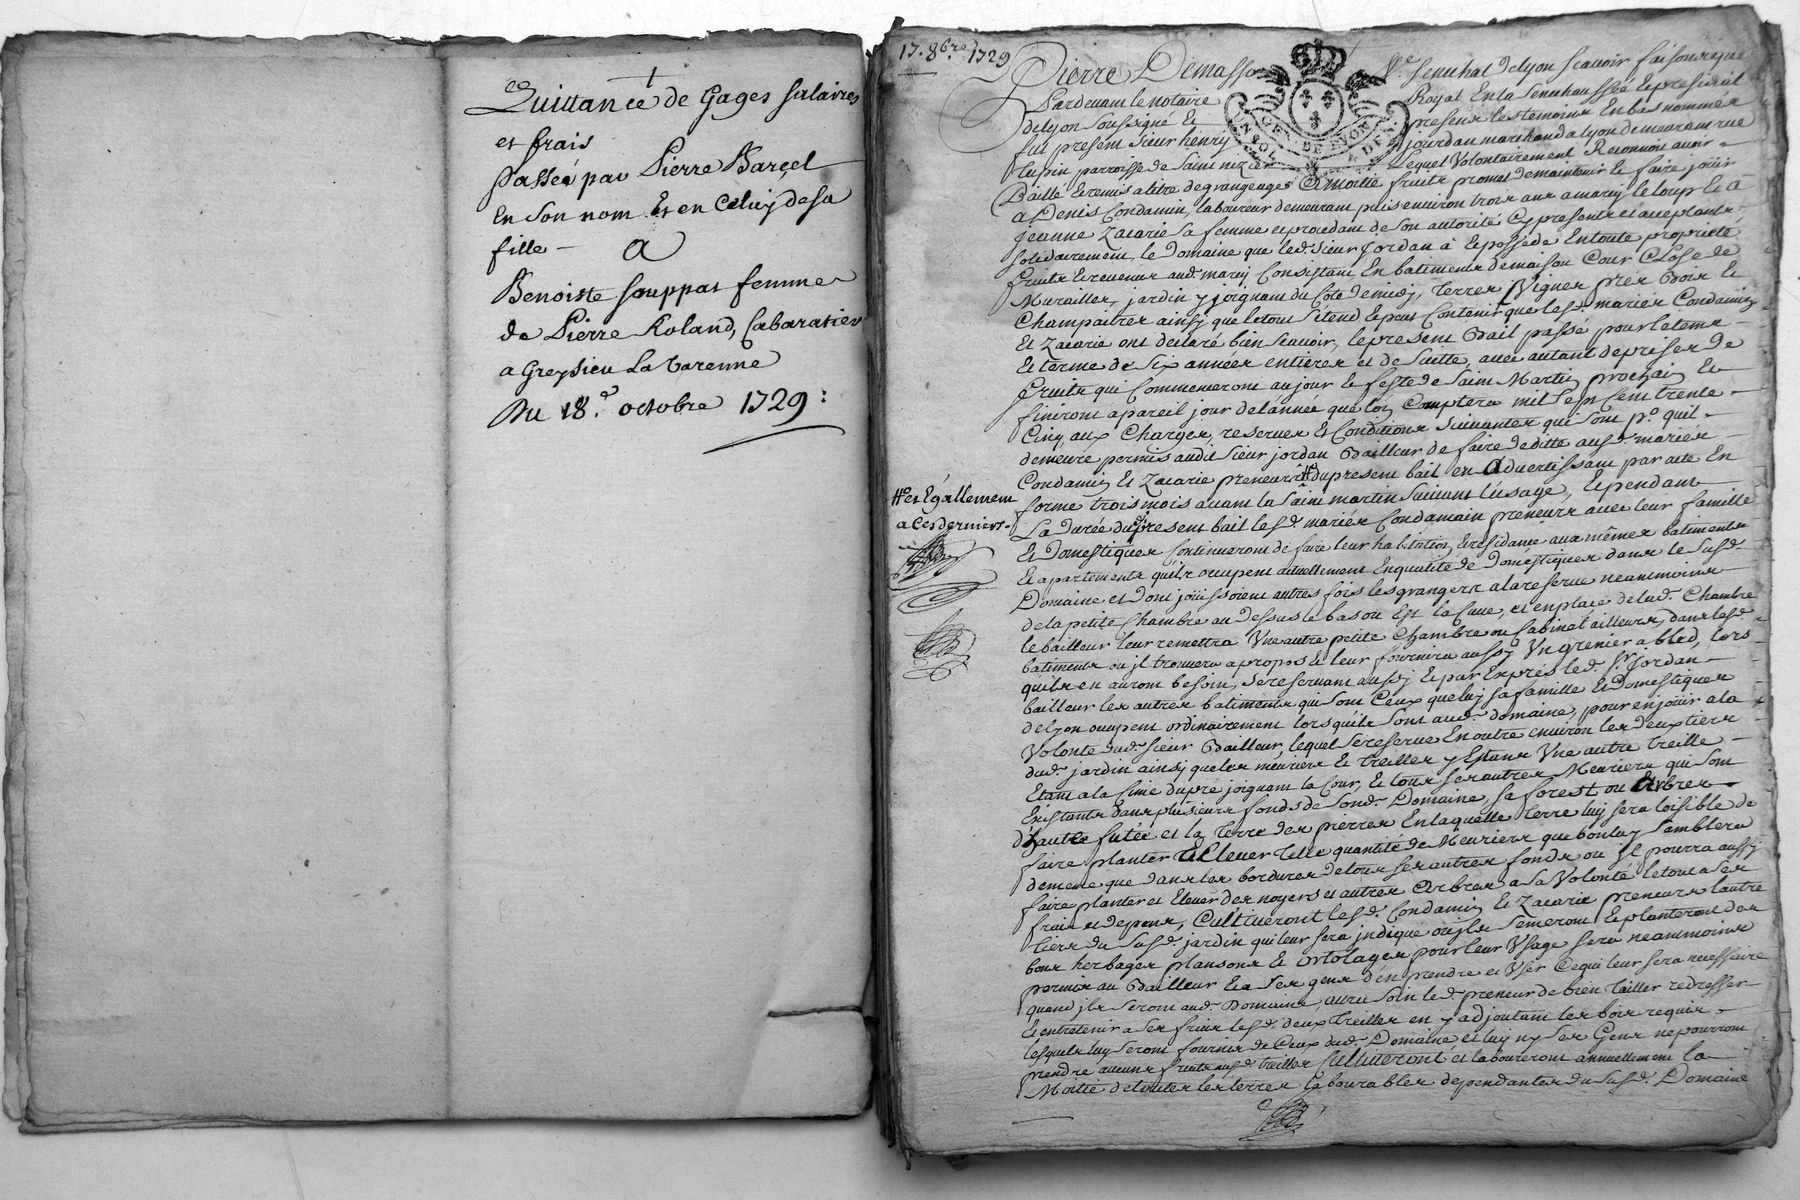 Quittance de Gages salaires
et frais
passée par Pierre Barcel
En son nom Et en Celuy de sa
fille - A
Benoiste souppat femme
de Pierre Roland, Cabaratier
a Greysieu La Varenne
Du 18.e octobre 1729:
17. 8bre 1729
Pierre Demasso Senechal de Lyon Scavoir faisons que
Pardevant le notaire Royal En la Senechaussée & presidial
de Lyon soussigné Et presens les temoins En bas nommés
fut present sieur henry jourdan marchand a lyon demeurant rue
parroisse de Saint nizier Lequel Volontairement Reconnoit avoir
Baillé & remis a titre de grangeages A moitié fruits promet de maintenir & faire joüir
a Denis Condamin, laboureur demeurant puis environ trois ans a marcy le loup & a
jeanne Zacarie sa femme & procedant de son autorité Cy presents et acceptants
solidairement, le Domaine que led. sieur Jordan à & possede En toute proprieté
fruits & revenus aud. marcy Consistant En batiments de maison Cour Close de
Murailles, jardin y joignant du Coté de midy, Terres Vignes prés Bois &
Champaitres ainsy que le tout s'étend & peut Contenir que lesd. mariés Condamin
Et Zacarie ont declaré bien scavoir, le present Bail passé pour le tems
Et terme de six années entieres et de suitte, avec autant de prises de
fruits qui Commenceront au jour & feste de Saint Martin prochain Et
finiront a pareil jour de l'année que l'on Comptera mil sept cent trente
Cinq, aux Charges, reserves Et Conditions suivantes qui sont p.o quil
demeure permis audit sieur jordan Bailleur de faire deditte ausd. mariés
Condamin Et Zacarie preneurs # du present bail en Advertissant par acte En
forme trois mois avant la Saint martin suivant l'usage, & pendant
# et Egallement
a Ces derniers
La durée du present bail lesd. mariés Condamin preneurs avec leur famille
Et Domestiques Continueront de faire leur habitation, & residance aux mêmes batiments
& apartements quils occupent actuellement En qualité de Domestiques dans le susd.
Domaine et dont joüissoient autres fois les grangers a la reserve neantmoins
de la petite Chambre au dessus le bas ou Est la Cuve, et en place de lad. Chambre
le bailleur leur remettra Vne autre petite Chambre ou Cabinet ailleurs, dans lesd.
batiments ou jl trouvera a propos & leur fournira aussy Vn grenier a bled, lors
quils en auront besoin, se reservant aussy & par Exprés led. Sr. Jordan
bailleur les autres batiments qui sont Ceux que luy sa famille & Domestiques
de lyon occupent ordinairement lorsquils sont aud. domaine, pour en joüir a la
Volonté dud. sieur Bailleur, lequel se reserve En outre environ les deux tiers
dud. jardin ainsy que les meuriers & treilles y Estans Vne autre treille
Etant a la Cime du pré joignant la Cour, & tous ses autres Meuriers qui sont
Existants dans plusieurs fonds de sond. Domaine, sa forest ou Arbres
d'haute futée et la Terre des pierres En laquelle Terre luy sera loisible de
faire planter & Elever Telle quantité de Meuriers que bon luy semblera
de meme que dans les bordures de tous ses autres fonds ou jl pourra aussy
faire planter et Elever des noyers et autres Arbres a sa Volonté le tout a ses
frais et depens, Cultiveront lesd. Condamin Et Zacarie preneurs l'autre
tiers du susd. jardin qui leur sera jndiqué ou jls semeront & planteront des
bons herbages plansons & ortolages pour leur Vsage sera neantmoins
permis au Bailleur & a ses gens d'en prendre et Vser Ce qui leur sera necessaire
quand jls seront aud. Domaine, aura soin led. preneur de bien tailler redresser
& entretenir a ses frais lesd. deux treilles en y adjoutant les bois requis
lesquels luy seront fournis de Ceux dud. Domaine, et luy ny ses Gens ne pourront
prendre aucuns fruits ausd. treilles Cultiveront et laboureront annuellement la
Moitié de toutes les terres labourables dependantes du susd. Domaine